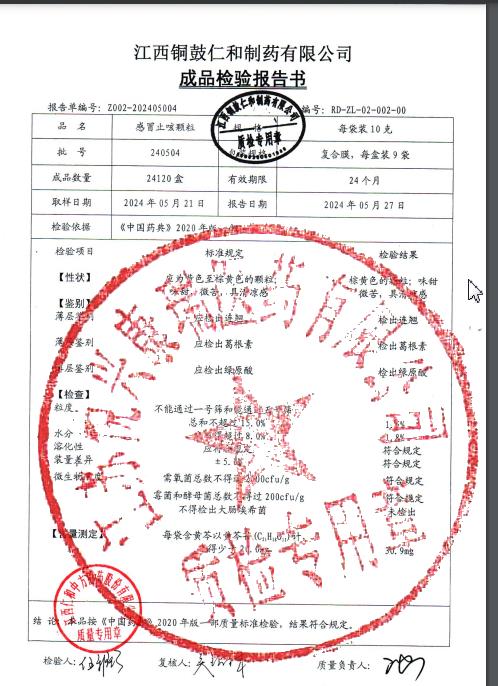 江西铜鼓仁和制药有限公司
成品检验报告书
报告单编号: Z002-202405004 编号: RD-ZL-02-002-00
品 名 感冒止咳颗粒 规 格 每袋装10克
批 号 240504 包装规格 复合膜,每盒装9袋
成品数量 24120盒 有效期限 24个月
取样日期 2024年05月21日 报告日期 2024年05月27日
检验依据 《中国药典》2020年版
检验项目 标准规定 检验结果
【性状】 应为黄色至棕黄色的颗粒; 棕黄色的颗粒;味甜
味甜、微苦,具清凉感 微苦,具清凉感
【鉴别】
薄层鉴别 应检出连翘 检出连翘
薄层鉴别 应检出葛根素 检出葛根素
薄层鉴别 应检出绿原酸 检出绿原酸
【检查】
粒度 不能通过一号筛和能通过五号筛
总和不超过15.0%
水分 8.0% 1.8%
溶化性 应符合规定 符合规定
装量差异 ±5.0% 符合规定
微生物限度 需氧菌总数不得过2000cfu/g 符合规定
霉菌和酵母菌总数不得过200cfu/g 符合规定
不得检出大肠埃希菌 未检出
【含量测定】 每袋含黄芩以黄芩苷 计,
不得少于 30.9mg
结 论 本品按《中国药典》2020年版一部质量标准检验,结果符合规定。
检验人: 复核人: 质量负责人:
江西铜鼓仁和制药有限公司
质检专用章
质量专用章